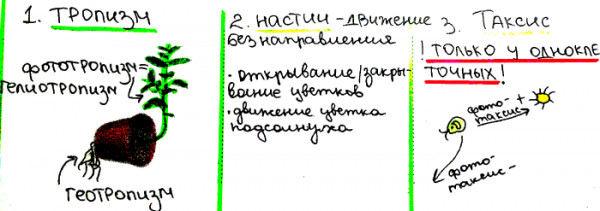 1. ТРОПИЗМ
фототропизм=
гелиотропизм
геотропизм
2. НАСТИИ - движение
без направления
• открывание/закры-
вание цветков
• движение цветка
подсолнуха
3. Таксис
! только у однокле
точных!
фото-
таксис +
фото-
таксис-